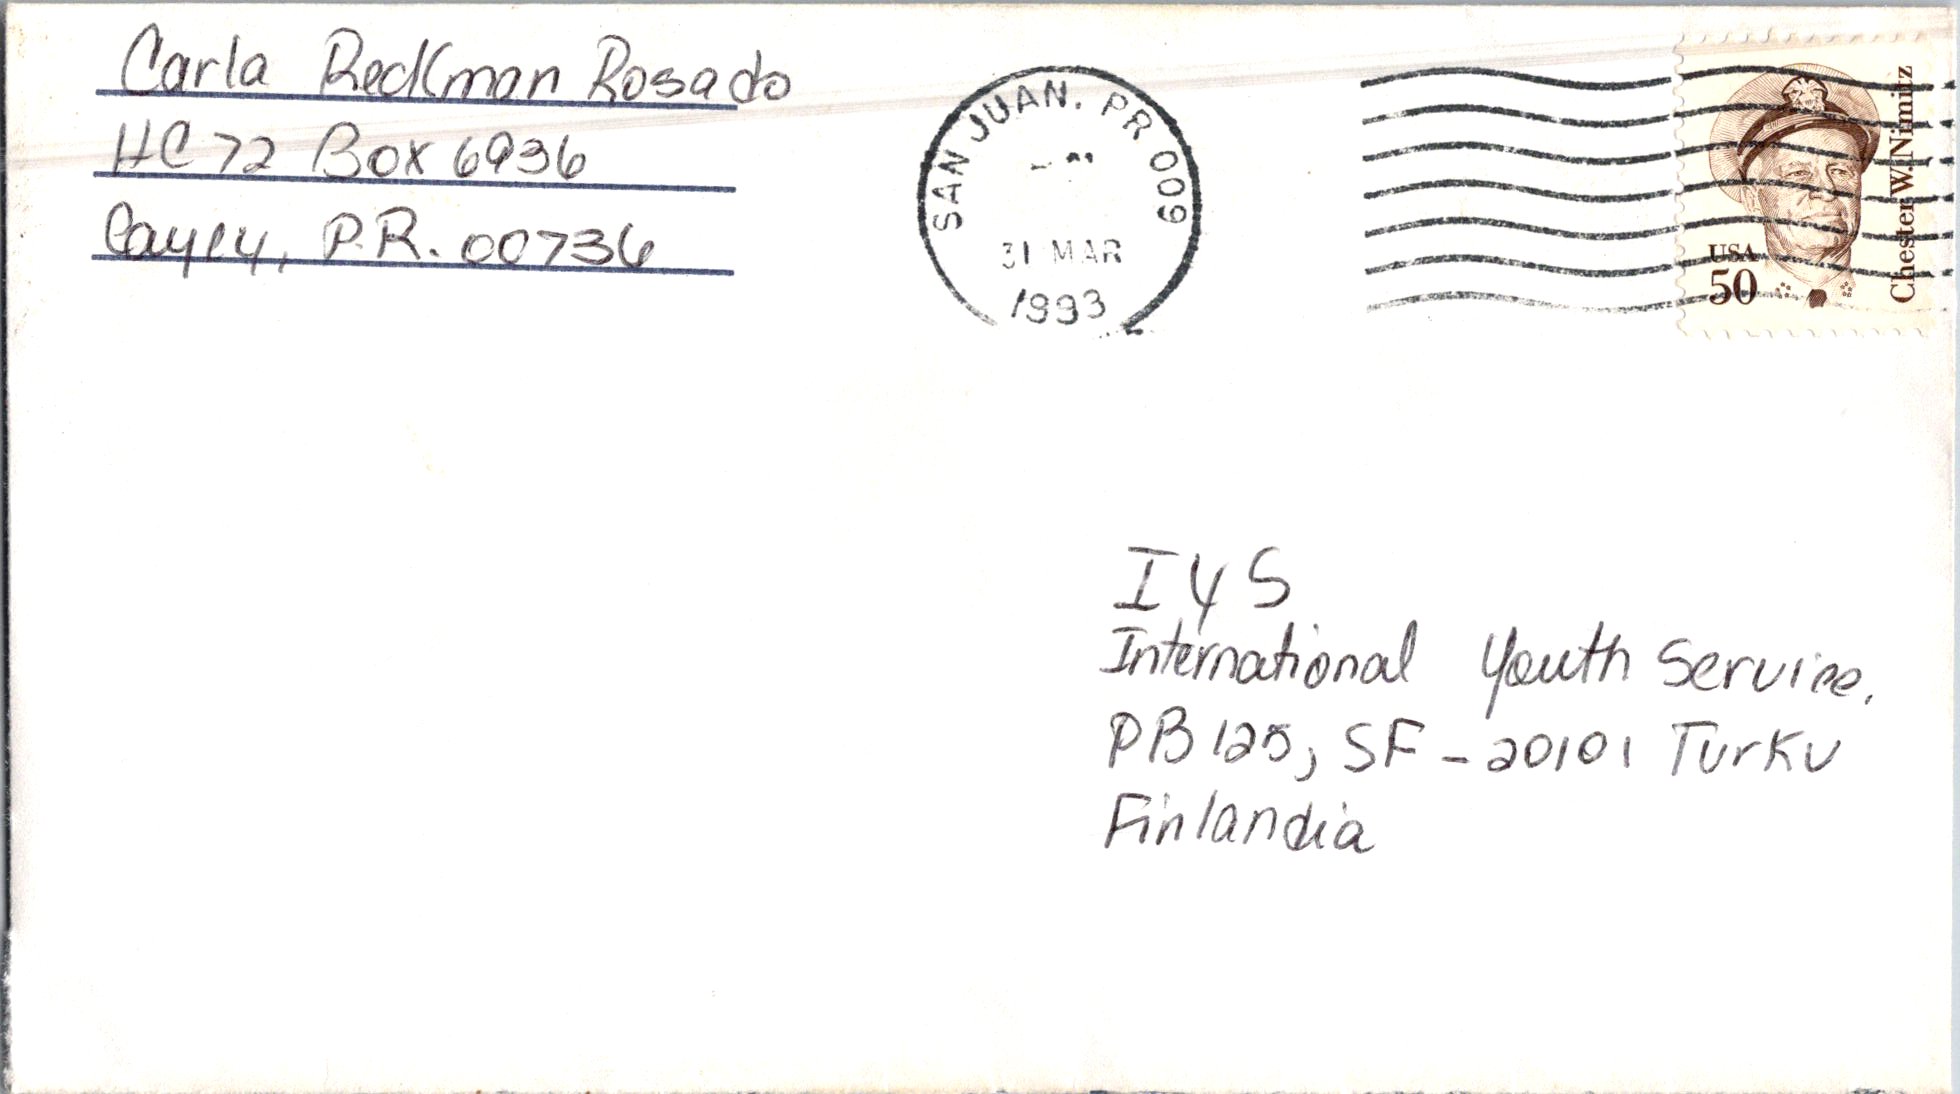 Carla Reckman Rosado
HC 72 Box 6936
Cayey, P.R. 00736
SAN JUAN. PR 009
31 MAR
1993
Chester W. Nimitz
USA
50
I Y S
International Youth Service.
PB 125, SF - 20101 Turku
Finlandia